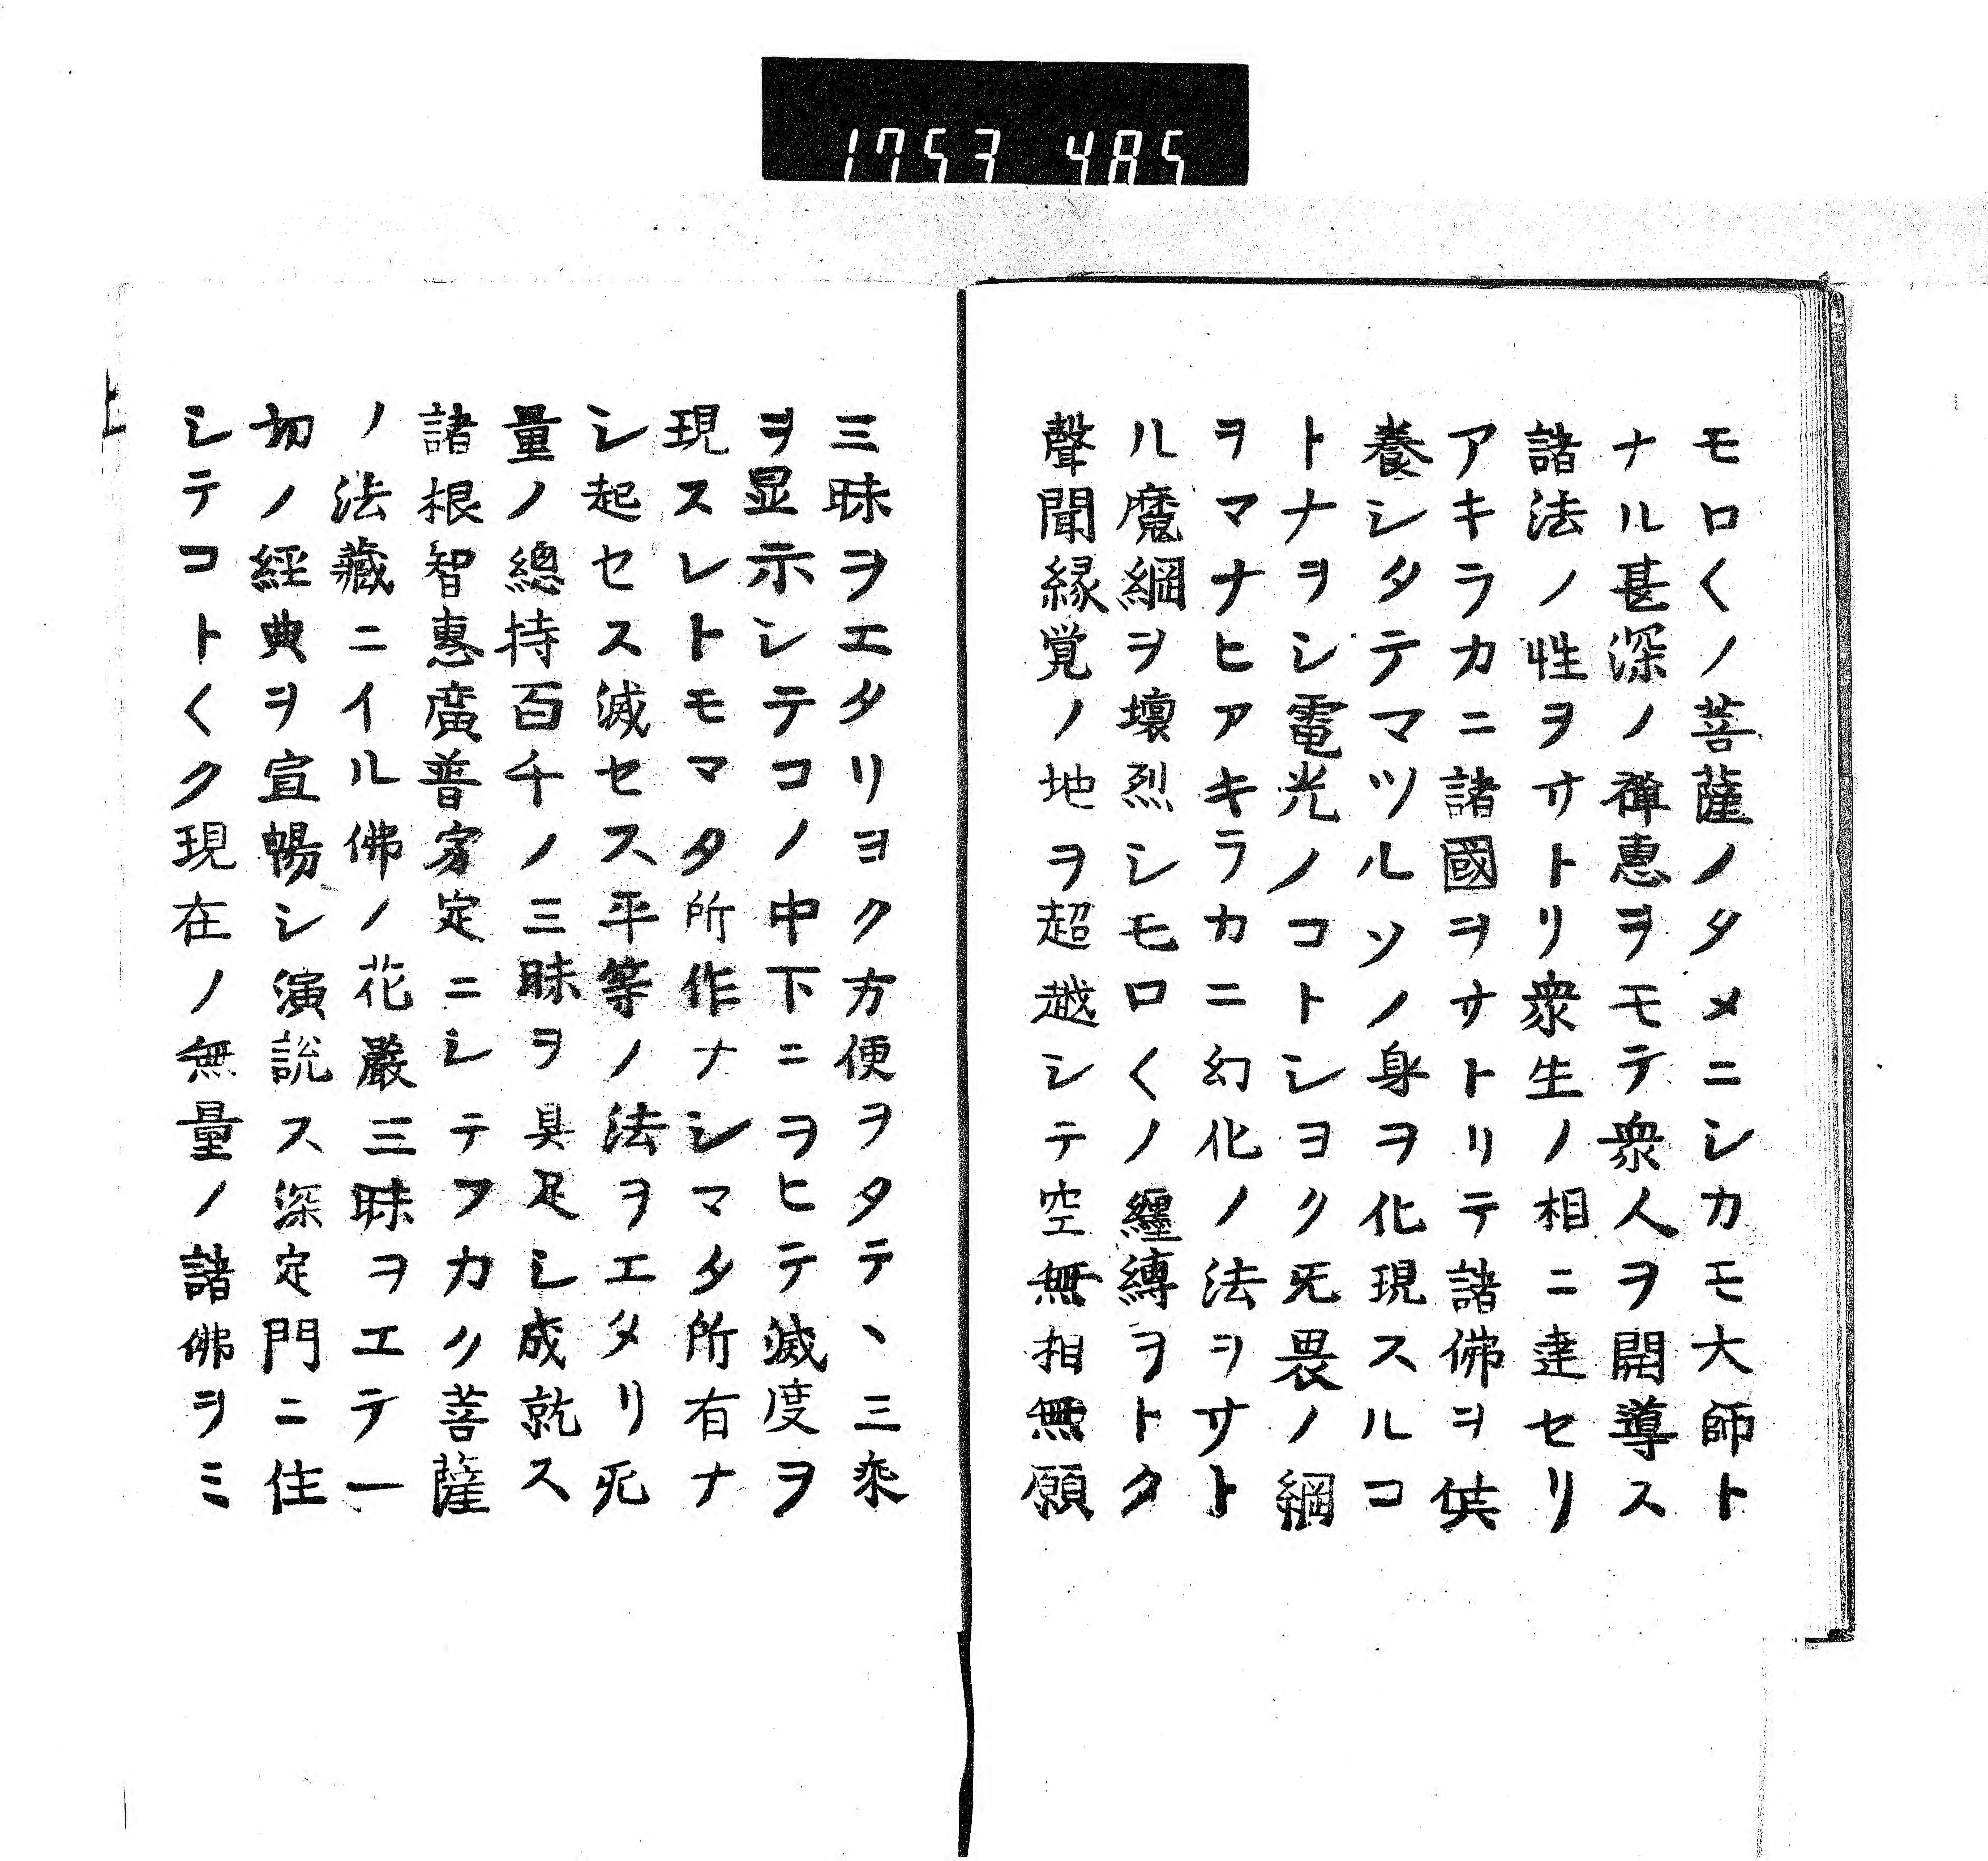 1753 485
モロ〱ノ菩薩ノタメニシカモ大師ト
ナル甚深ノ禅恵ヲモテ衆人ヲ開導ス
諸法ノ性ヲサトリ衆生ノ相ニ達セリ
アキラカニ諸國ヲサトリテ諸佛ヲ供
養シタテマツルソノ身ヲ化現スルコ
トナヲシ電光ノコトシヨク旡畏ノ綱
ヲマナヒアキラカニ幻化ノ法ヲサト
ル魔綱ヲ壊烈シモロ〱ノ纏縛ヲトク
聲聞縁覚ノ地ヲ超越シテ空無相無願
三昧ヲエタリヨク方便ヲタテヽ三乘
ヲ显示シテコノ中下ニヲヒテ滅度ヲ
現スレトモマタ所作ナシマタ所有ナ
シ起セス滅セス平等ノ法ヲエタリ旡
量ノ總持百千ノ三昧ヲ具足シ成就ス
諸根智惠廣普寂定ニシテフカク菩薩
ノ法藏ニイル佛ノ花嚴三昧ヲエテ一
切ノ経典ヲ宣暢シ演説ス深定門ニ住
シテコト〱ク現在ノ無量ノ諸佛ヲミ
上